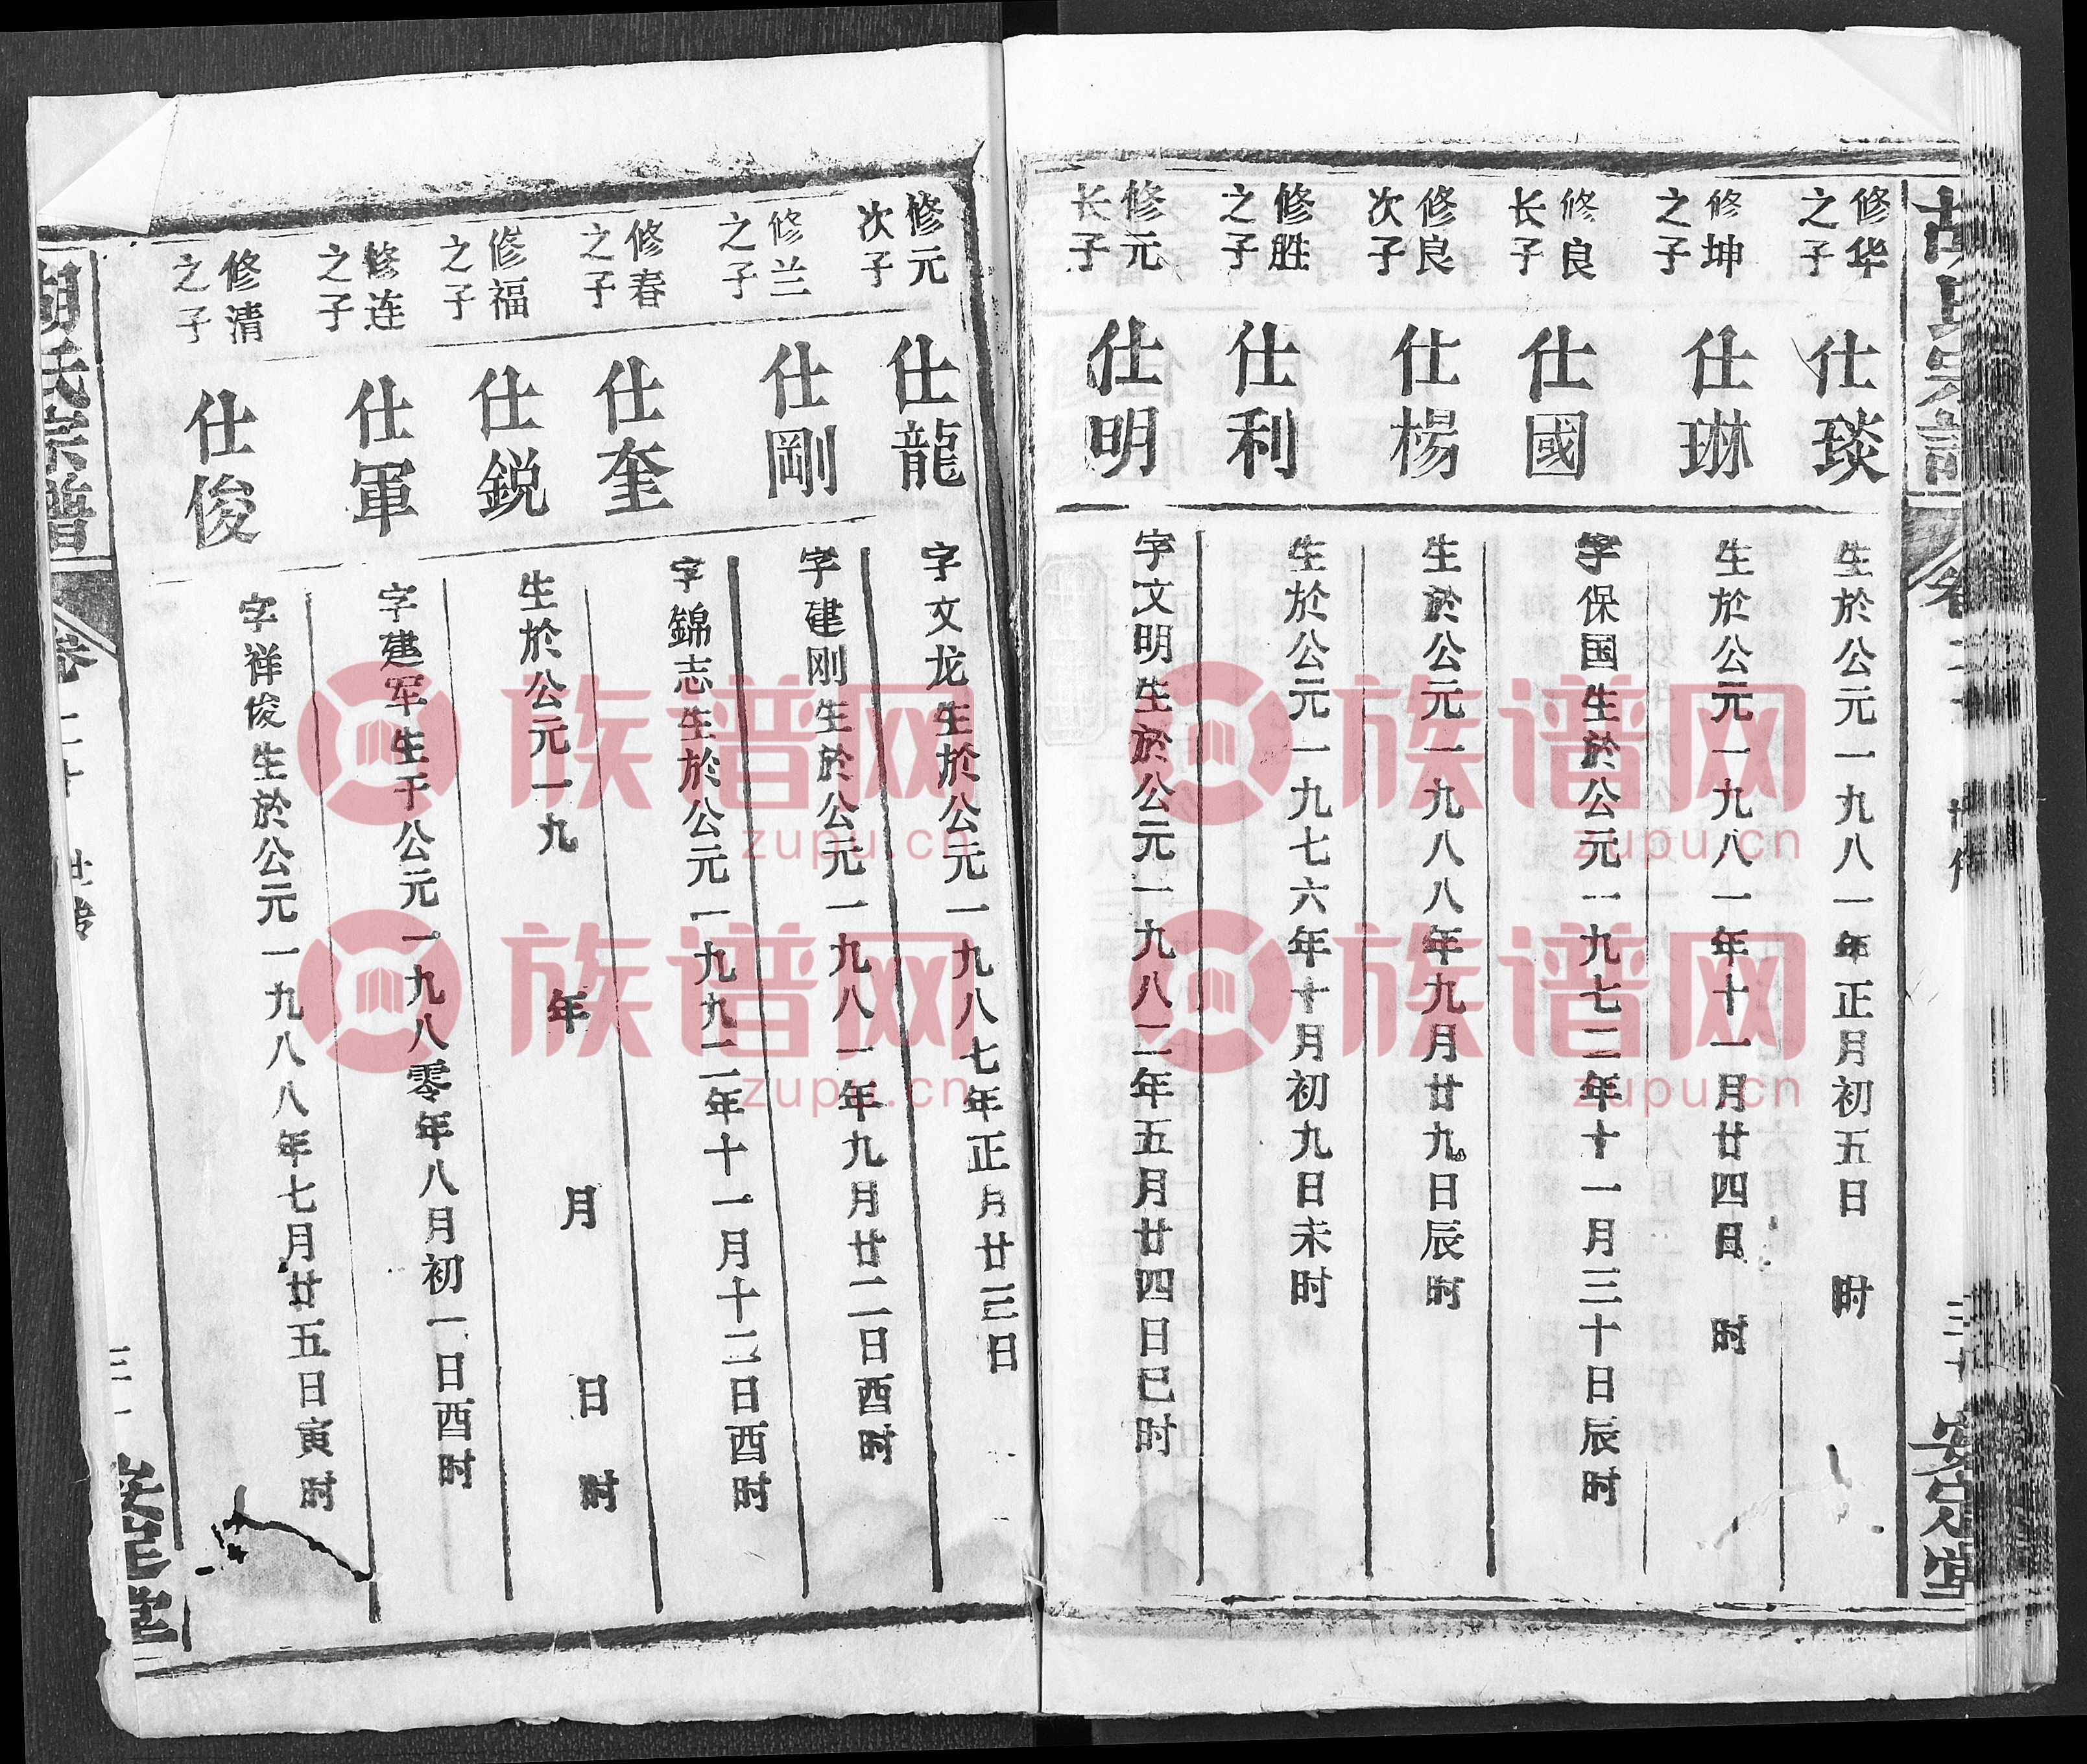 胡氏宗譜
卷二十
世傳
三十
安定堂
修华
之子
仕琰
生於公元一九八一年正月初五日 时
修坤
之子
仕琳
生於公元一九八一年十一月廿四日 时
修良
长子
仕國
字保国生於公元一九七二年十一月三十日辰时
修良
次子
仕楊
生於公元一九八八年九月廿九日辰时
修胜
之子
仕利
生於公元一九七六年十月初九日未时
修元
长子
仕明
字文明生於公元一九八二年五月廿四日巳时
修元
次子
仕龍
字文龙生於公元一九八七年正月廿三日
修兰
之子
仕剛
字建刚生於公元一九八一年九月廿二日酉时
修春
之子
仕奎
字錦志生於公元一九九二年十一月十二日酉时
修福
之子
仕鋭
生於公元一九 年 月 日 时
修连
之子
仕軍
字建军生于公元一九八零年八月初一日酉时
修清
之子
仕俊
字祥俊生於公元一九八八年七月廿五日寅时
胡氏宗譜
卷二十
世傳
三一
安定堂
族谱网
zupu.cn
族谱网
zupu.cn
族谱网
zupu.cn
族谱网
zupu.cn